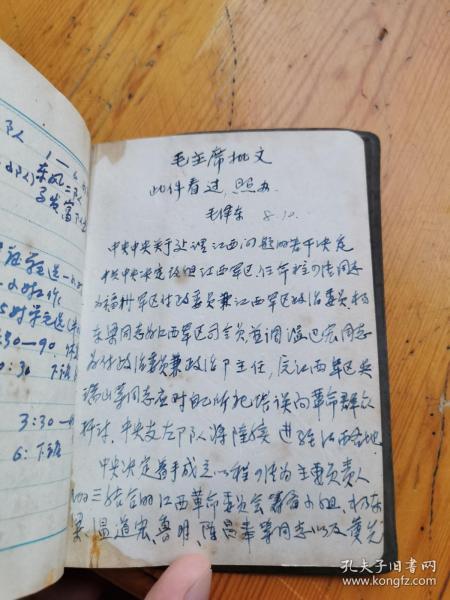 队 1—6.
队)东风二队
3:30—
6:下班
毛主席批文
此件看过,照办.
毛泽东 8.10.
中央中央关于处理江西问题的若干决定
中共中央决定改组江西军区,任命程世清同志
为福州军区付政委员兼江西军区政治委员,杨
栋梁同志为江西军区司令员,并调温道宏同志
为付政治委员兼政治部主任,原江西军区吴
瑞山等同志应对自己所犯错误向革命群众
检讨.中央支左部队将陆续进驻江西各地.
中央决定着手成立以程世清为主要负责人
的三结合的江西革命委员会筹备小组,杨栋
梁、温道宏、鲁明、陈昌奉等同志以及黄先
孔夫子旧书网
www.kongfz.com